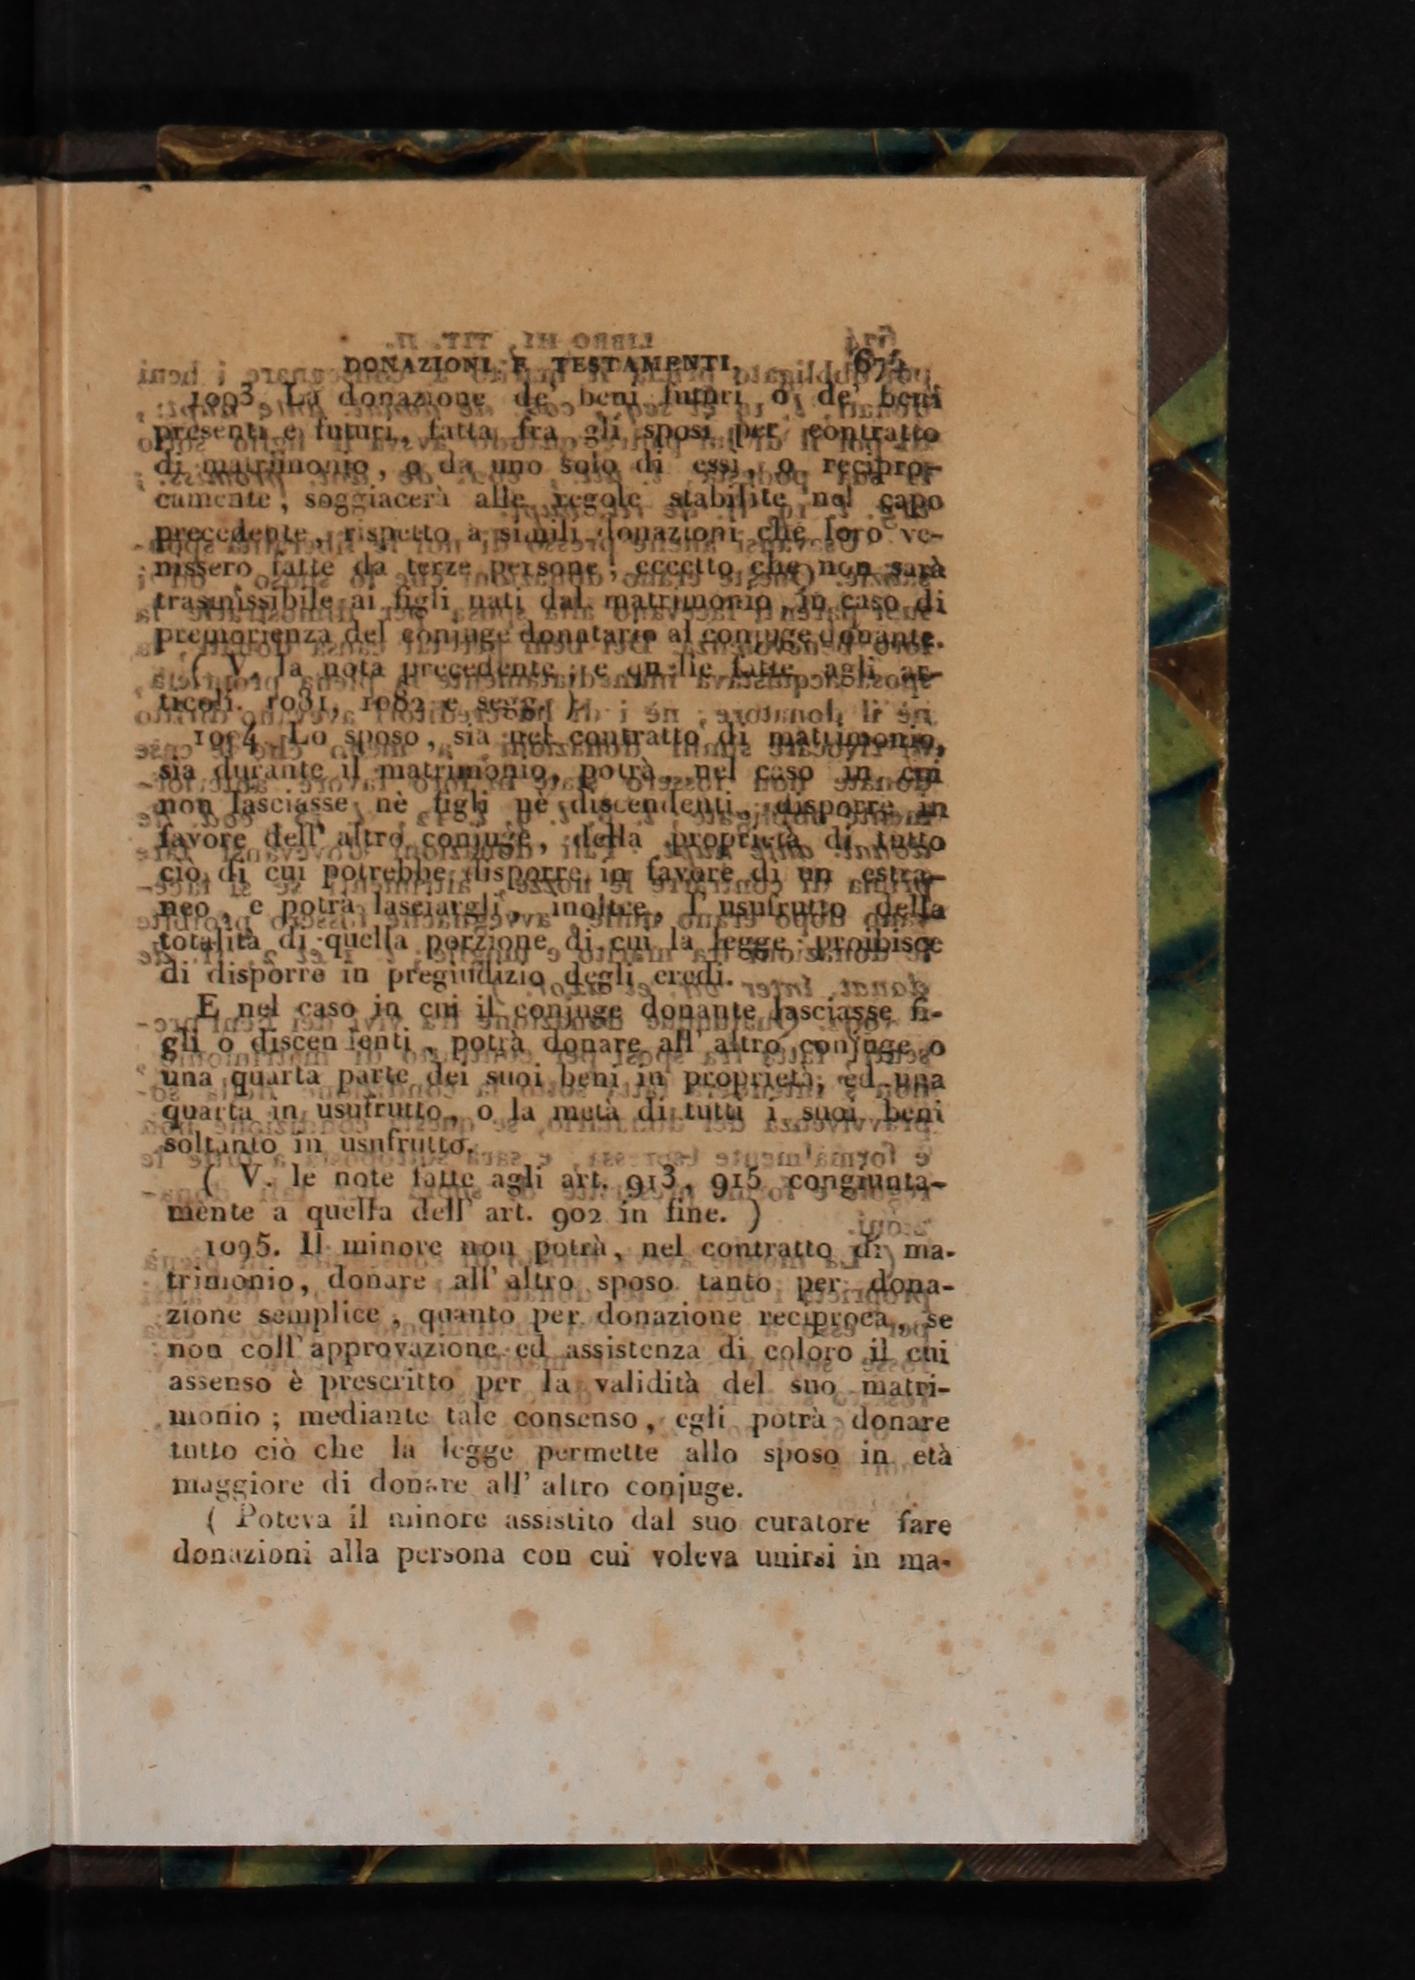 DONAZIONI E TESTAMENTI.
1093. La donazione de' beni futuri, o de' beni
presenti e futuri, fatta fra gli sposi per contratto
di matrimonio, o da uno solo di essi, o recipro-
camente, soggiacerà alle regole stabilite nel capo
precedente, rispetto a simili donazioni che loro ve-
nissero fatte da terze persone; eccetto che non sarà
trasmissibile ai figli nati dal matrimonio, in caso di
premorienza del conjuge donatario al conjuge donante.
( V. la nota precedente, e quelle fatte agli ar-
ticoli. 1081, 1082 e segg. )
1094. Lo sposo, sia nel contratto di matrimonio,
sia durante il matrimonio, potrà, nel caso in cui
non lasciasse nè figli nè discendenti, disporre in
favore dell' altro conjuge, della proprietà di tutto
ciò di cui potrebbe disporre in favore di un estra-
neo, e potrà lasciargli, inoltre, l' usufrutto della
totalità di quella porzione di cui la legge proibisce
di disporre in pregiudizio degli eredi.
E nel caso in cui il conjuge donante lasciasse fi-
gli o discendenti, potrà donare all' altro conjuge o
una quarta parte dei suoi beni in proprietà, ed una
quarta in usufrutto, o la metà di tutti i suoi beni
soltanto in usufrutto.
( V. le note fatte agli art. 913, 915 congiunta-
mente a quella dell' art. 902 in fine. )
1095. Il minore non potrà, nel contratto di ma-
trimonio, donare all' altro sposo tanto per dona-
zione semplice, quanto per donazione reciproca, se
non coll' approvazione ed assistenza di coloro il cui
assenso è prescritto per la validità del suo matri-
monio; mediante tale consenso, egli potrà donare
tutto ciò che la legge permette allo sposo in età
maggiore di donare all' altro conjuge.
( Poteva il minore assistito dal suo curatore fare
donazioni alla persona con cui voleva unirsi in ma-